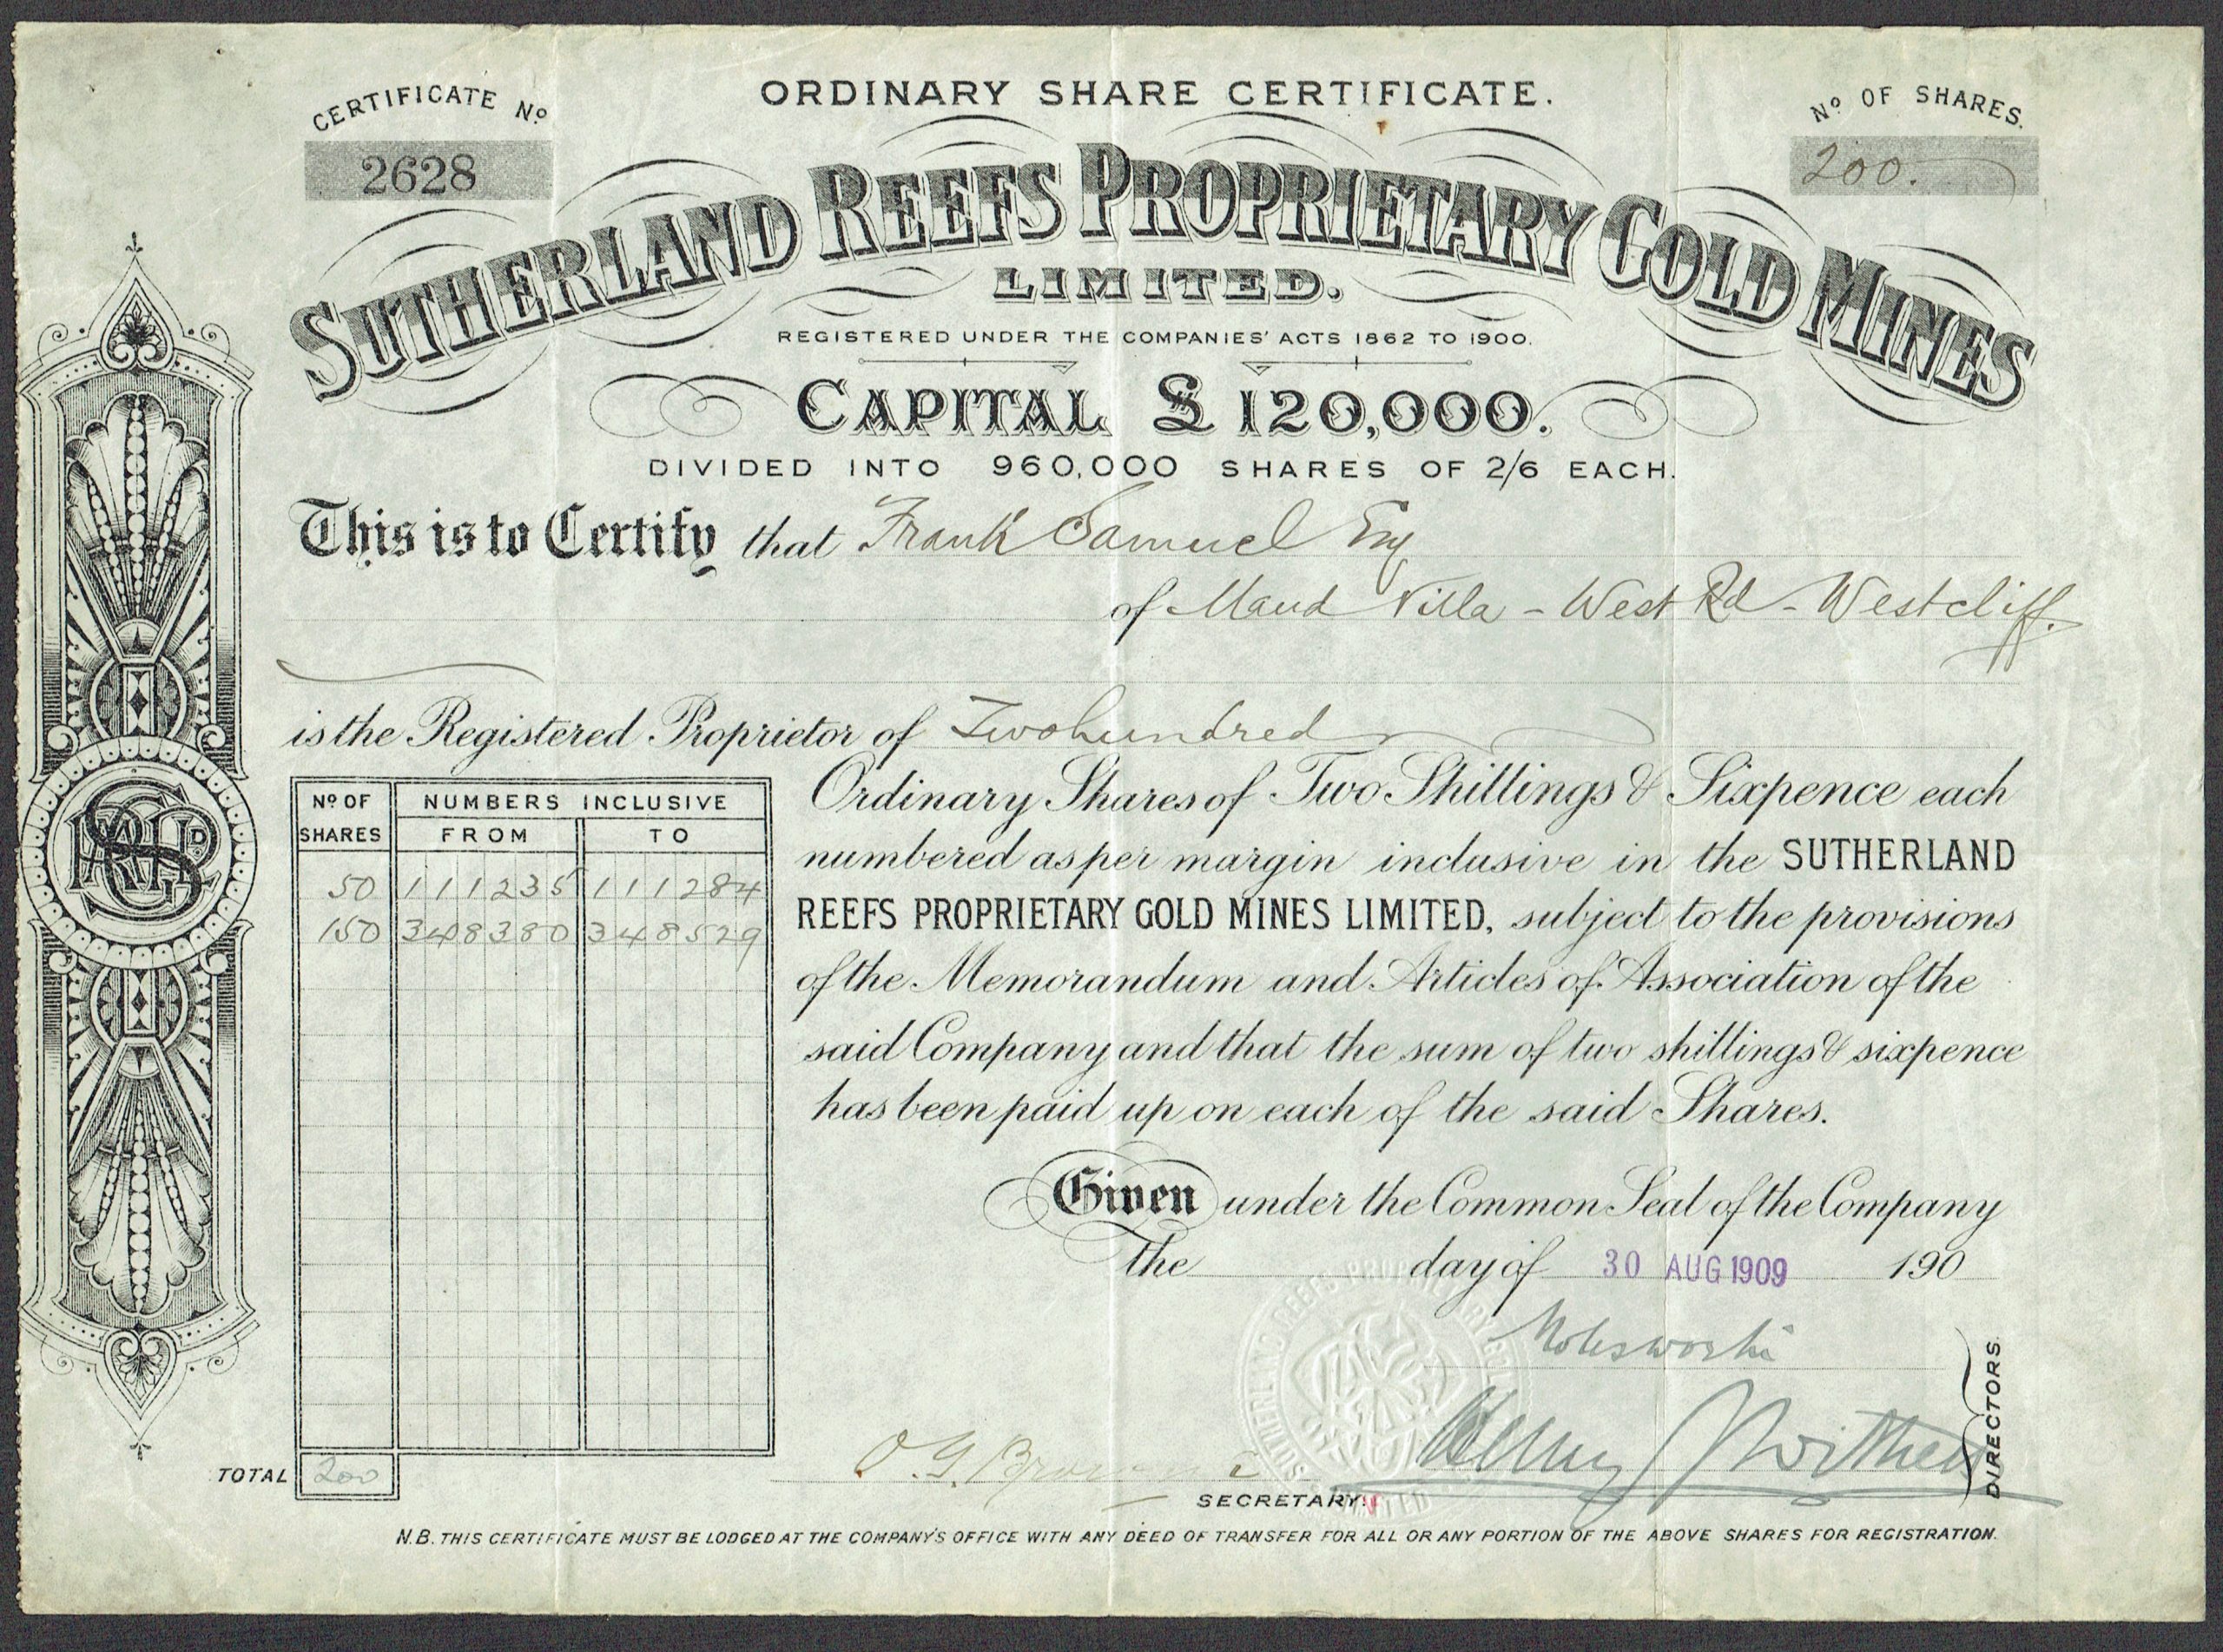 CERTIFICATE No.
2628
ORDINARY SHARE CERTIFICATE.
No. OF SHARES.
200.
SUTHERLAND REEFS PROPRIETARY GOLD MINES
LIMITED.
REGISTERED UNDER THE COMPANIES' ACTS 1862 TO 1900.
CAPITAL £120,000.
DIVIDED INTO 960,000 SHARES OF 2/6 EACH.
This is to Certify that Frank Samuel Esq
of Maud Villa - West Rd - Westcliff.
is the Registered Proprietor of Two hundred
Ordinary Shares of Two Shillings & Sixpence each
numbered as per margin inclusive in the SUTHERLAND
REEFS PROPRIETARY GOLD MINES LIMITED, subject to the provisions
of the Memorandum and Articles of Association of the
said Company and that the sum of two shillings & sixpence
has been paid up on each of the said Shares.
No. OF SHARES NUMBERS INCLUSIVE
FROM TO
50 111235 111284
150 348380 348529
TOTAL 200
Given under the Common Seal of the Company
The day of 30 AUG 1909 190
Molesworth
DIRECTORS.
O.G. Browne
SECRETARY.
N.B. THIS CERTIFICATE MUST BE LODGED AT THE COMPANY'S OFFICE WITH ANY DEED OF TRANSFER FOR ALL OR ANY PORTION OF THE ABOVE SHARES FOR REGISTRATION.